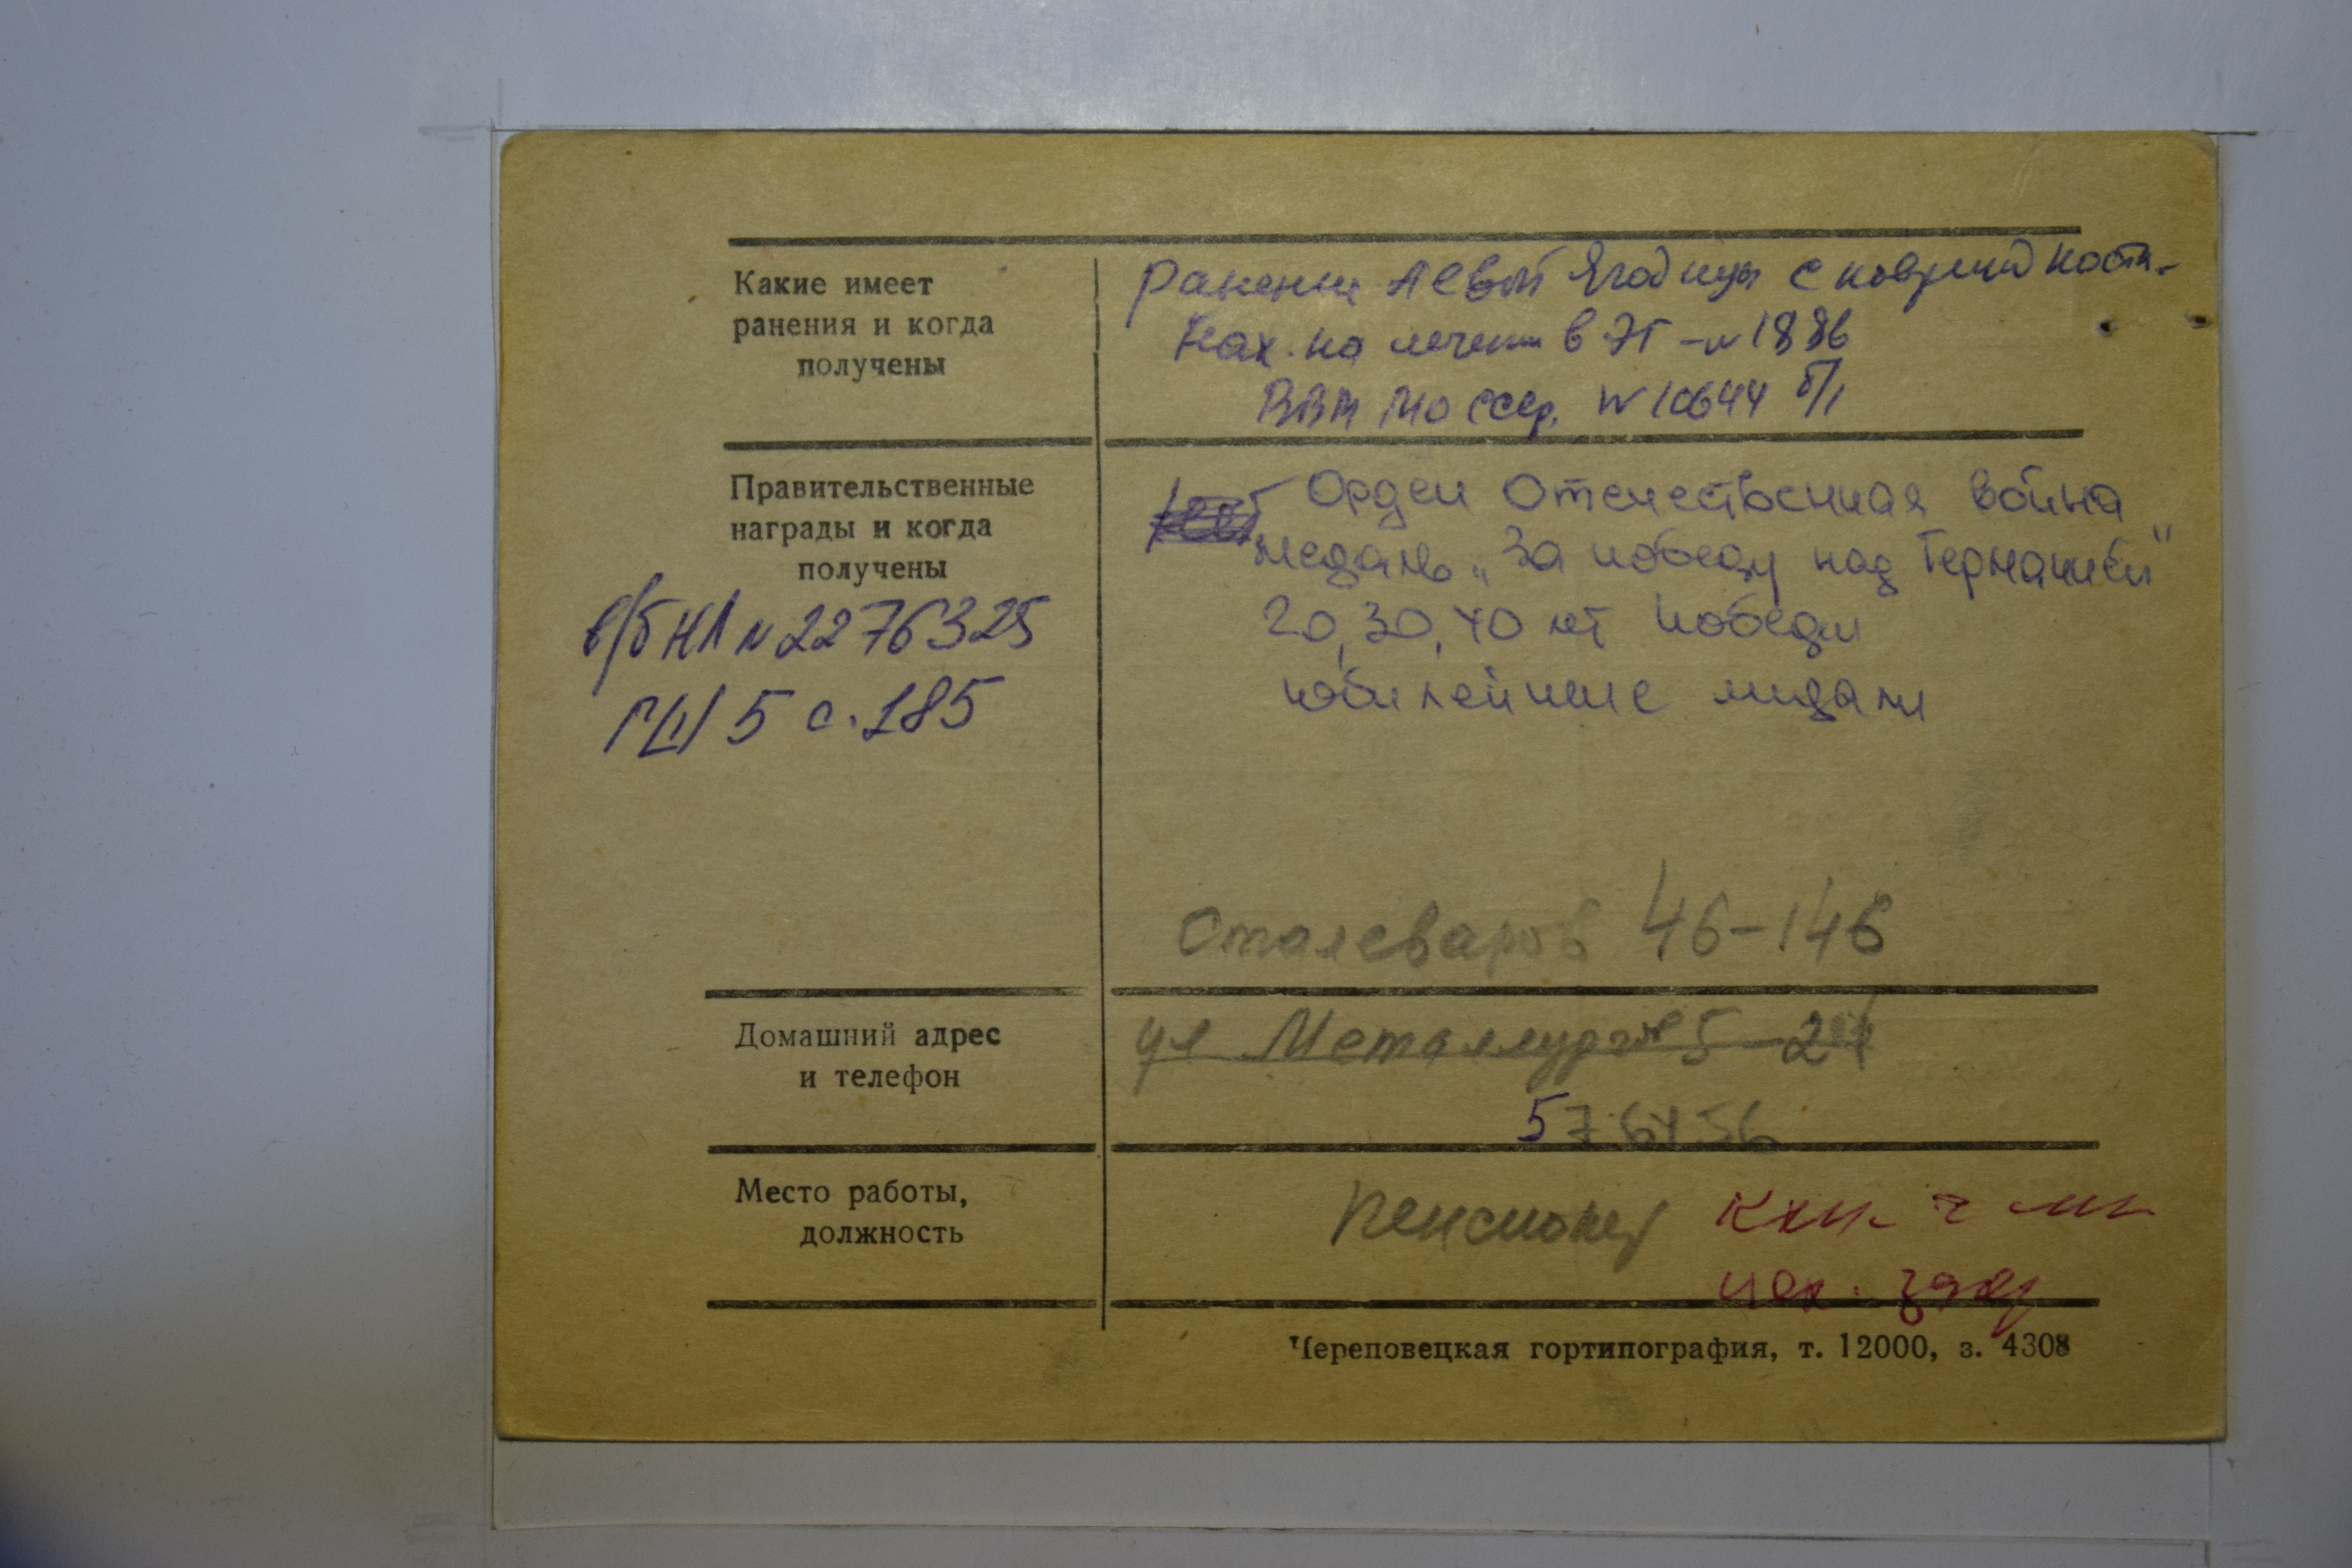 Какие имеет
ранения и когда
получены
Ранение левой ягодицы с поврежд кости.
Нах. на лечении в ЭГ-№1886
ВВМ МО ССР. №10644 б/л
Правительственные
награды и когда
получены
Орден Отечественная война
медаль „За победу над Германией"
20, 30, 40 лет победы
юбилейные медали
в/б НЛ №2276325
5 с. 185
Сталеваров 46-146
Домашний адрес
и телефон
ул Металлургов 5-24
Место работы,
должность
Пенсионер
Череповецкая гортипография, т. 12000, з. 4308